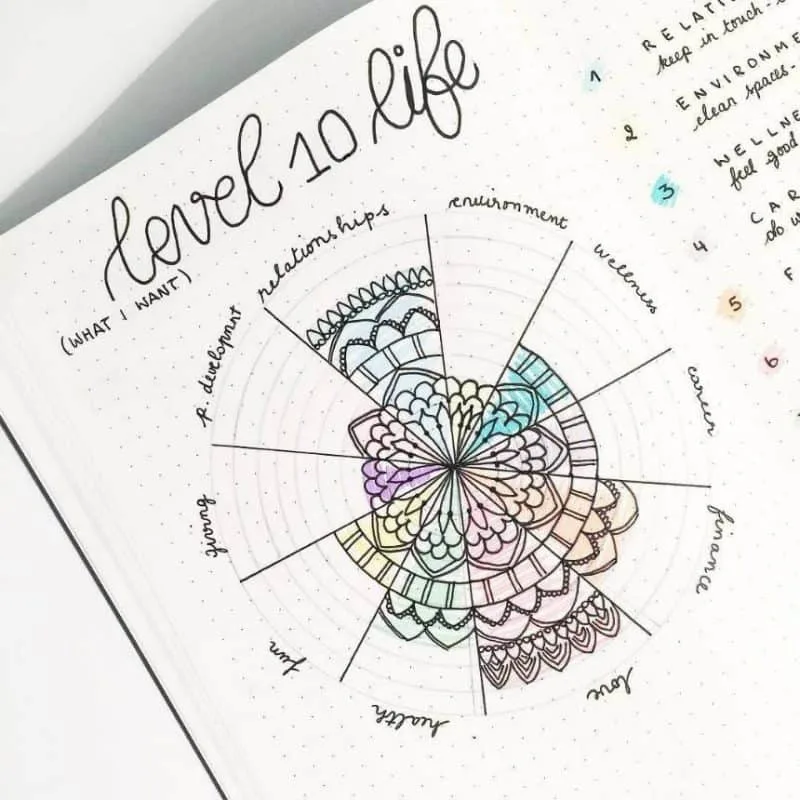 level 10 life
(WHAT I WANT)
relationships
environment
wellness
career
finance
love
health
fun
giving
p. development
1
keep in touch -
2
clean spaces -
3
feel good
4
do
5
F
6